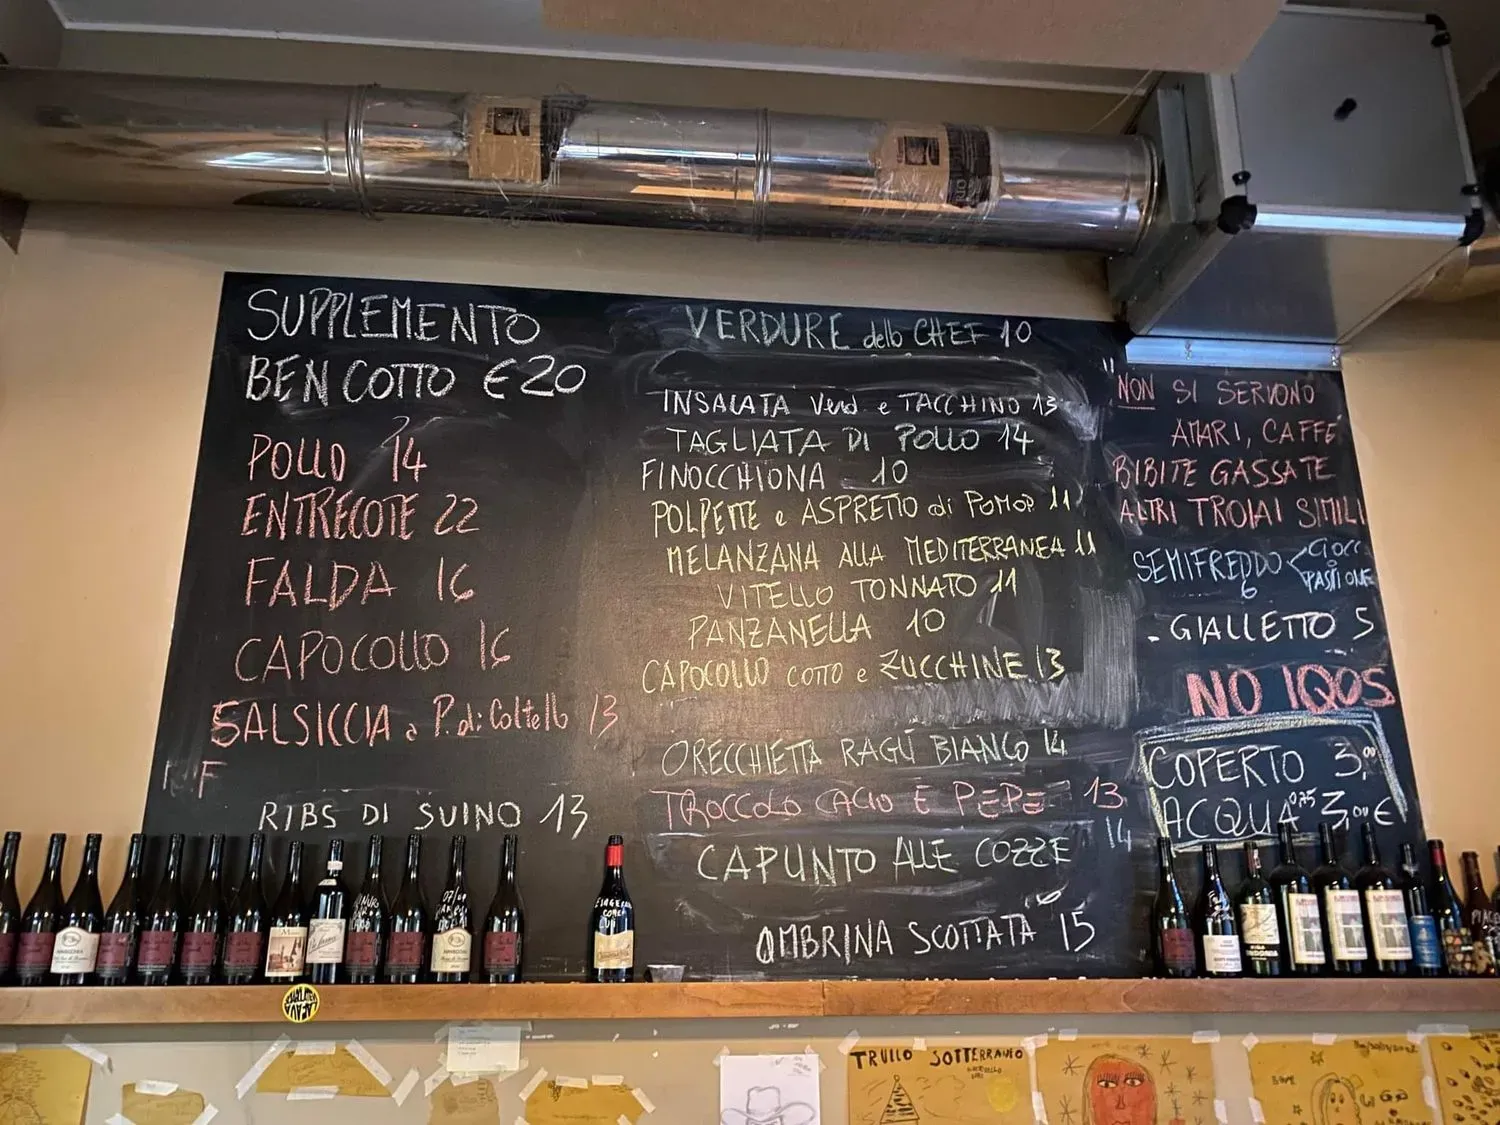 SUPPLEMENTO
BEN COTTO €20
POLLO 14
ENTRECOTE 22
FALDA 16
CAPOCOLLO 16
SALSICCIA e P. di Coltello 13
F
RIBS DI SUINO 13
VERDURE dello CHEF 10
INSALATA Verd e TACCHINO 13
TAGLIATA DI POLLO 14
FINOCCHIONA 10
POLPETTE e ASPRETTO di POMOD 11
MELANZANA ALLA MEDITERRANEA 11
VITELLO TONNATO 11
PANZANELLA 10
CAPOCOLLO COTTO e ZUCCHINE 13
ORECCHIETTA RAGÙ BIANCO 14
TROCCOLO CACIO E PEPE 13
14
CAPUNTO ALLE COZZE
OMBRINA SCOTTATA 15
"NON SI SERVONO
AMARI, CAFFE'
BIBITE GASSATE
ALTRI TROIAI SIMILI
SEMIFREDDO < CIOCC
6 PASSIONE
- GIALLETTO 5
NO IQOS
COPERTO 3,00
ACQUA 0,75 3,00 €
TRULLO SOTTERRANEO